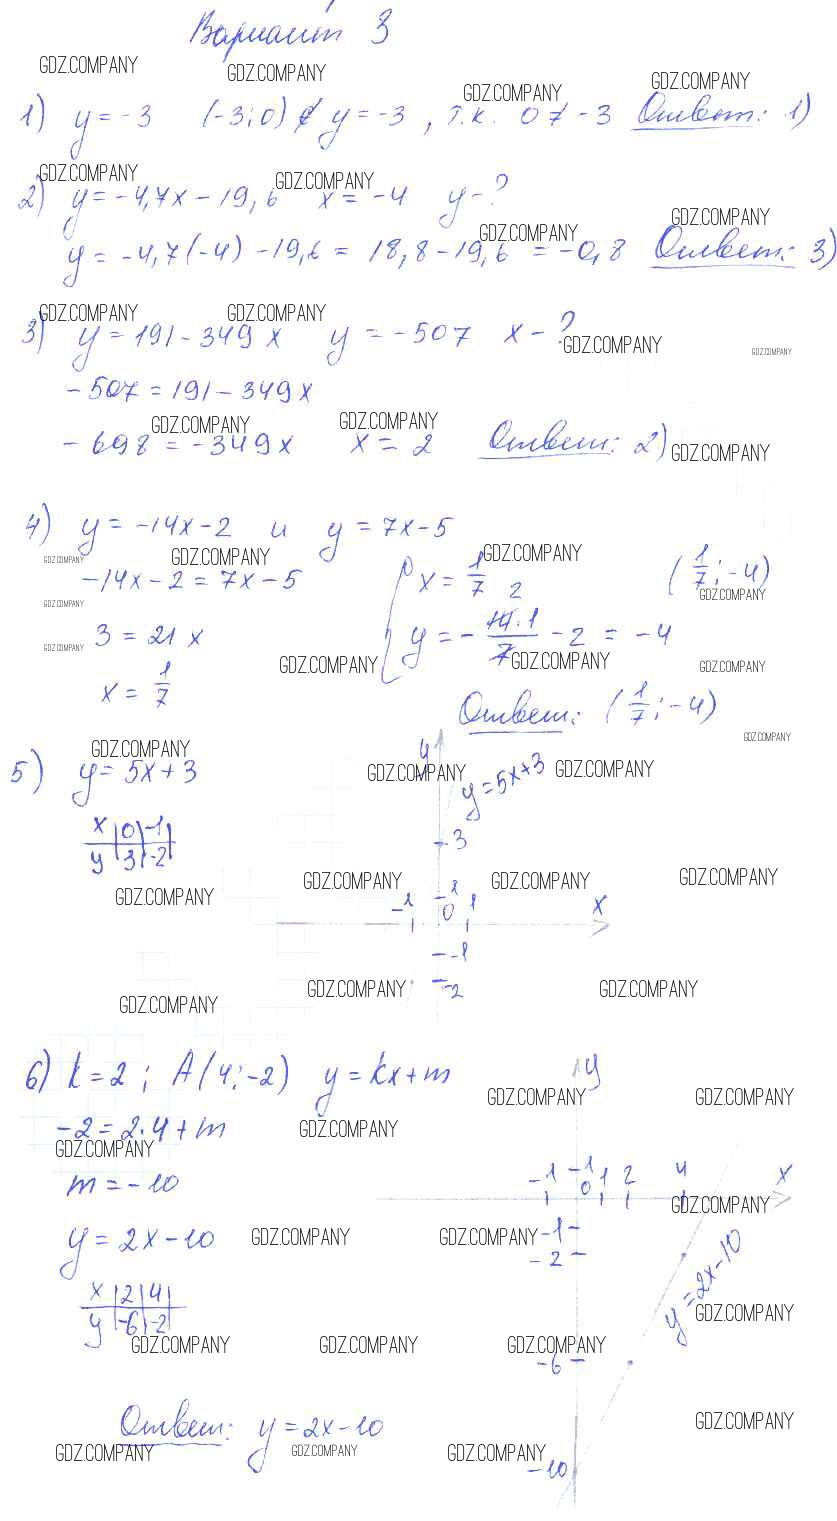 Вариант 3
GDZ.COMPANY GDZ.COMPANY GDZ.COMPANY GDZ.COMPANY
1) y = -3 (-3; 0) ∉ y = -3, т.к. 0 ≠ -3 Ответ: 1)
GDZ.COMPANY GDZ.COMPANY
2) y = -4,7x - 19,6 x = -4 y - ?
GDZ.COMPANY GDZ.COMPANY
y = -4,7(-4) - 19,6 = 18,8 - 19,6 = -0,8 Ответ: 3)
GDZ.COMPANY GDZ.COMPANY
3) y = 191 - 349x y = -507 x - ?
GDZ.COMPANY GDZ.COMPANY
-507 = 191 - 349x
GDZ.COMPANY GDZ.COMPANY
-698 = -349x x = 2 Ответ: 2)
GDZ.COMPANY
4) y = -14x - 2 и y = 7x - 5
GDZ.COMPANY GDZ.COMPANY GDZ.COMPANY
-14x - 2 = 7x - 5 x = 1/7 (1/7; -4)
GDZ.COMPANY GDZ.COMPANY
3 = 21x y = - 14·1/7 2 - 2 = -4
GDZ.COMPANY GDZ.COMPANY GDZ.COMPANY GDZ.COMPANY
x = 1/7
Ответ: (1/7; -4)
GDZ.COMPANY
5) y = 5x + 3 y y = 5x + 3
GDZ.COMPANY GDZ.COMPANY GDZ.COMPANY
x 0 -1
y 3 -2
3
GDZ.COMPANY GDZ.COMPANY GDZ.COMPANY GDZ.COMPANY
-1 1 0 1 x
-1
-2
GDZ.COMPANY GDZ.COMPANY GDZ.COMPANY
6) k = 2; A(4; -2) y = kx + m y
GDZ.COMPANY GDZ.COMPANY
-2 = 2·4 + m
GDZ.COMPANY GDZ.COMPANY
m = -10
-1 1 0 1 2 4 x
GDZ.COMPANY
y = 2x - 10
GDZ.COMPANY GDZ.COMPANY
-1
-2
y = 2x - 10
x 2 4
y -6 -2
GDZ.COMPANY
GDZ.COMPANY GDZ.COMPANY GDZ.COMPANY
-6
Ответ: y = 2x - 10
GDZ.COMPANY
GDZ.COMPANY GDZ.COMPANY GDZ.COMPANY
-10